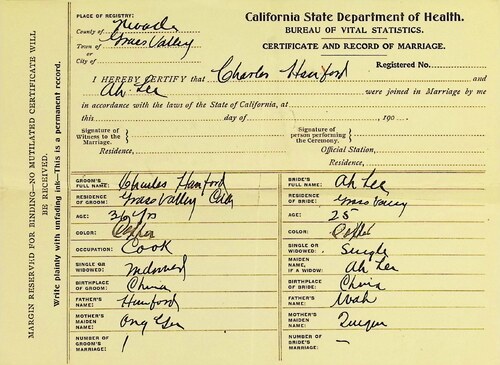 PLACE OF REGISTRY:
County of Nevada
Town of Grass Valley
or
City of
California State Department of Health.
BUREAU OF VITAL STATISTICS.
CERTIFICATE AND RECORD OF MARRIAGE.
Registered No.
I HEREBY CERTIFY that Charles Hanford and
Ah Lee were joined in Marriage by me
in accordance with the laws of the State of California, at
this day of , 190
Signature of
Witness to the
Marriage.
Residence,
Signature of
person performing
the Ceremony.
Official Station,
Residence,
GROOM'S
FULL NAME: Charles Hanford
RESIDENCE
OF GROOM: Grass Valley
AGE:
COLOR:
OCCUPATION: Cook
SINGLE OR
WIDOWED: widowed
BIRTHPLACE
OF GROOM: China
FATHER'S
NAME: Hanford
MOTHER'S
MAIDEN
NAME: Ong
NUMBER OF
GROOM'S
MARRIAGE: 1
BRIDE'S
FULL NAME: Ah Lee
RESIDENCE
OF BRIDE: Grass Valley
AGE: 25
COLOR:
SINGLE OR
WIDOWED: Single
MAIDEN
NAME,
IF A WIDOW: Ah Lee
BIRTHPLACE
OF BRIDE: China
FATHER'S
NAME: Wah
MOTHER'S
MAIDEN
NAME:
NUMBER OF
BRIDE'S
MARRIAGE: —
MARGIN RESERVED FOR BINDING—NO MUTILATED CERTIFICATE WILL
BE RECEIVED.
Write plainly with unfading ink—This is a permanent record.